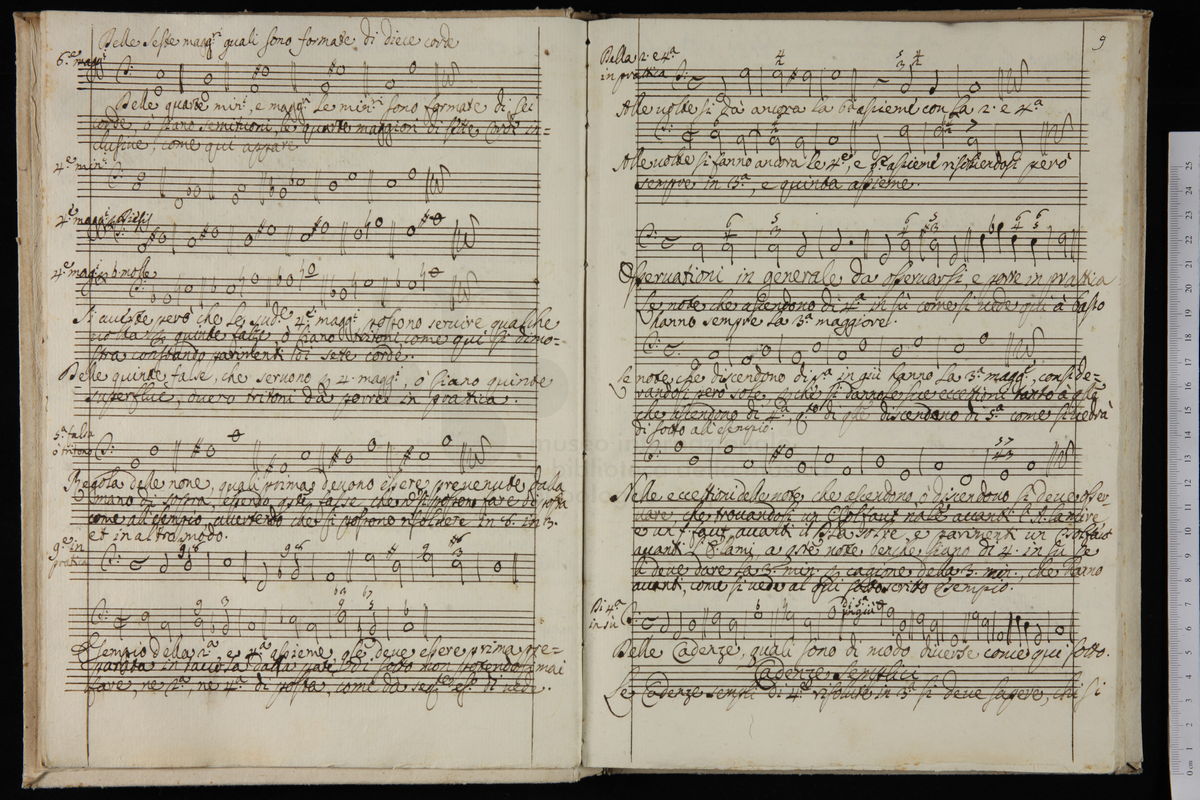 Delle seste magg.ri quali sono formate di diece corde
6.e magg.ri
Delle quarte min.ri e magg.ri le min.ri sono formate di sei
corde, ò siano semituoni, le quarte maggiori di sette corde in=
clusive, come qui appare
4.e min.ri
4.e magg.ri Diesis
4.e magg.ri b. molle
Si averte però che le sud.e 4.e magg.ri possono servire qualche
quinte false, ò siano tritoni come qui si dimo=
stra constando parimenti di sette corde.
Delle quinte false, che servono p 4. magg.ri, ò siano quinte
superflue, overo tritoni da porre in pratica.
5.a falsa
ò tritono
Regola delle none, quali prima devono essere prevenute dalla
mano di sopra, essendo note false, che non si possono fare di posta
come all'esempio, avertendo che si possono risolvere in 6. in 3.
et in altro modo.
9.e in
pratica
9 8
9 8
9 3
Esempio della 2.a, e 4.a assieme, deve essere prima pre=
parata in faccia dalla parte di sotto non potendosi mai
fare, ne 2.a, ne 4.a di posta, come da seg.te es.o si vede.
9
Della 2. e 4.a
in prattica
Alle volte si dà ancora la 5.a assieme con la 2. e 4.a
Alle volte si fanno ancora le 4.e, e 6.e assieme risolvendosi però
sempre in 3.a, e quinta assieme.
Osservationi in generale da osservarsi e porre in prattica
Le note che ascendono di 4.a in sù come si vede qui à basso
hanno sempre la 3.a maggiore.
Le note che discendono di 5.a in giù hanno la 3.a magg.re, conside=
randosi però sole, perchè si danno le sue eccettioni tanto à q.lle
che ascendono di 4.a, q.to di q.lle discendono di 5.a come si vedrà
di sotto all'esempio.
Nelle eccettioni delle note, che ascendono ò discendono si deve osser=
vare che trovandosi un C solfaut avanti l'A lamire
e un f faut avanti il D la solre, e parimenti un
avanti l'E lami, a q.ste note benche siano di 4. in sù se
li deve dare la 3. min. p cagione della 3. min., che hanno
avanti, come si vede al qui sottoscritto esempio.
Di 4.a
in sù
Di 5.a
in giù
Delle Cadenze, quali sono di modo diverse come qui sotto.
Cadenze semplici
Le Cadenze sempli di 4.a risolute in 3.a si deve sapere, che si